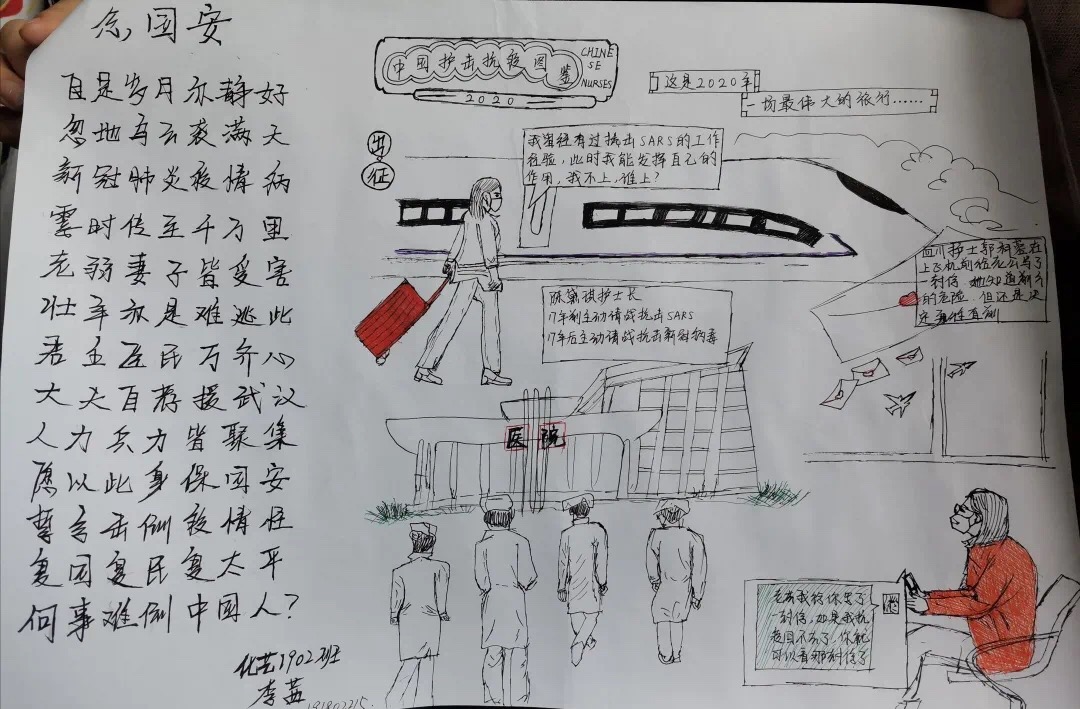 念,国安
自是岁月亦静好
忽地乌云袭满天
新冠肺炎疫情病
霎时传至千万里
老弱妻子皆受害
壮年亦是难逃此
君主医民万齐心
大夫自荐援武汉
人力兵力皆聚集
愿以此身保国安
誓言击倒疫情怪
复国复民复太平
何事难倒中国人?
化艺1902班
李茜
中国护士抗疫图鉴
CHINE
SE
NURSES
2020
这是2020年
一场最伟大的旅行……
出
征
我曾经有过抗击SARS的工作
经验,此时我能发挥自己的
作用,我不上,谁上?
陈黛琪护士长
17年前主动请战抗击SARS
17年后主动请战抗击新冠病毒
四川护士郭
上飞机前给老公写了
一封信,她知道前方
的危险,但还是决
定
医院
老公我给你写了
一封信,如果我抗
疫回不来了,你就
可以看那封信了